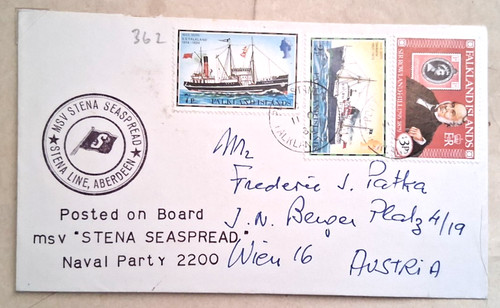 362
S.S FALKLAND
1914-1934
1p FALKLAND ISLANDS
FALKLAND ISLANDS
SIR ROWLAND HILL 1795-1879
3p
MSV STENA SEASPREAD
S
STENA LINE, ABERDEEN
Posted on Board
msv "STENA SEASPREAD"
Naval Party 2200
Mr
Frederic J. Patka
J. N. Berger Platz 4/19
Wien 16
AUSTRIA